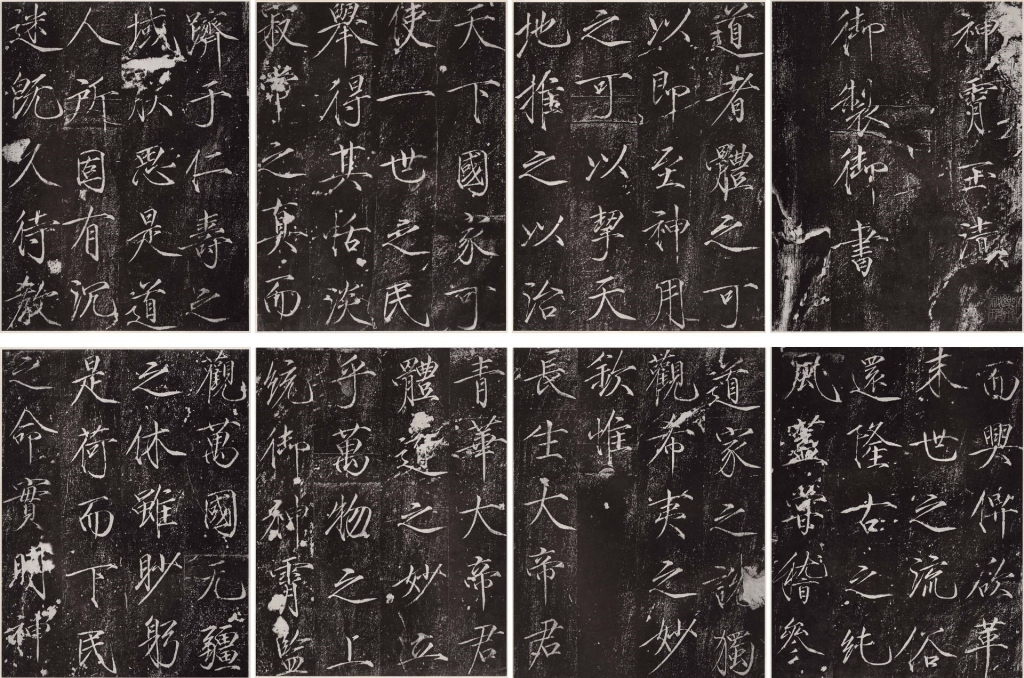 神霄玉清
御製御書
道者體之可
以即至神用
之可以挈天
地推之以治
天下國家可
使一世之民
舉得其恬淡
寂常之真而
躋于仁壽之
域朕思是道
人所固有沉
迷既久待教
而興俾欲革
末世之流俗
還隆古之純
風蓋嘗稽參
道家之說獨
觀希夷之妙
欽惟
長生大帝君
青華大帝君
體道之妙立
乎萬物之上
統御神霄監
觀萬國无疆
之休雖眇躬
是荷而下民
之命實明神